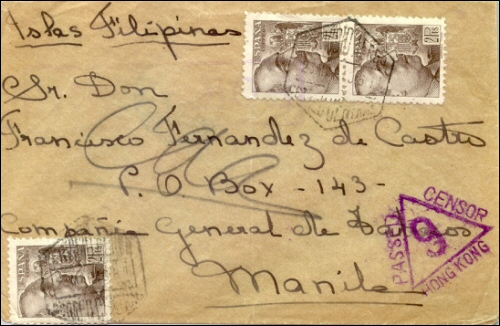 Islas Filipinas
ESPAÑA
2 PTS
Sr. Don
Francisco Fernandez de Castro
P. O Box - 143 -
Compañia General de Tabacos
Manila
PASSED
CENSOR
9
HONG KONG
ESPAÑA
2 PTS